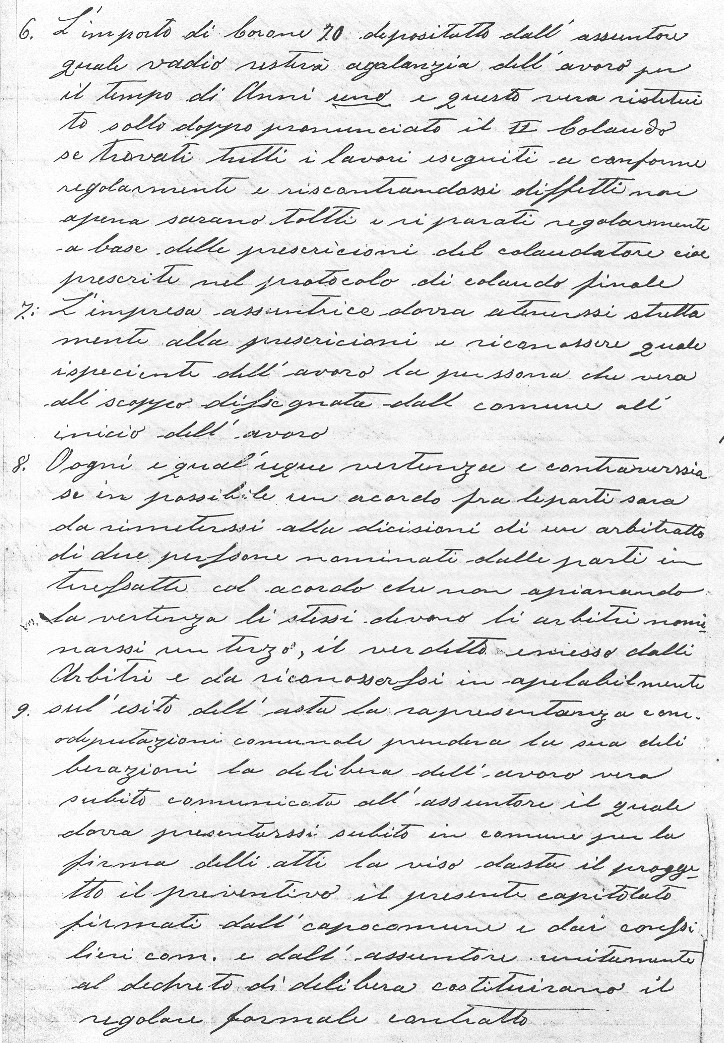 6. L'importo di Corone 20 depositatto dall' assuntore
quale vadio resterà agalanzia dell' avoro per
il tempo di Anni uno e questo vera ristitui
to sollo doppo pronunciato il II Colaudo
se trovati tutti i lavori eseguiti a conforme
regolarmente e riscontrandossi diffetti non
apena sarano toltti e riparati regolarmente
a base delle prescricioni del colaudatore cioe
prescrite nel protocolo di colaudo finale
7. L'impresa assuntrice dovra atenerssi stretta
mente alla prescricioni e riconossere quale
ispeciente dell' avoro la perssona che vera
all' scoppo dissegnata dall comune all'
inicio dell' avoro
8. Oogni e qual'uque vertenza e contraverssia
se in possibile un acordo fra leparti sara
da rimeterssi alla dicisioni di un arbitratto
di due perssone nominati dalle parti in
teressatte col acordo che non apianando
la vertenza li stessi devono li arbitri nomi-
narssi un terzo, il verdetto emesso dalli
Arbitri e da riconosserssi in apelabilmente
9. sul' esito dell' asta la rapresentanza com.
odeputazioni comunale prendera la sua deli
berazioni la delibera dell' avoro vera
subito comunicata all' assuntore il quale
dovra presentarssi subito in comune per la
firma delli atti la viso dasta il progge-
tto il preventivo il presente capitolato
firmati dall' capocomune e dai conssi
lieri com. e dall' assuntore unitamente
al dechreto di delibera costituirano il
regolare formale contratto